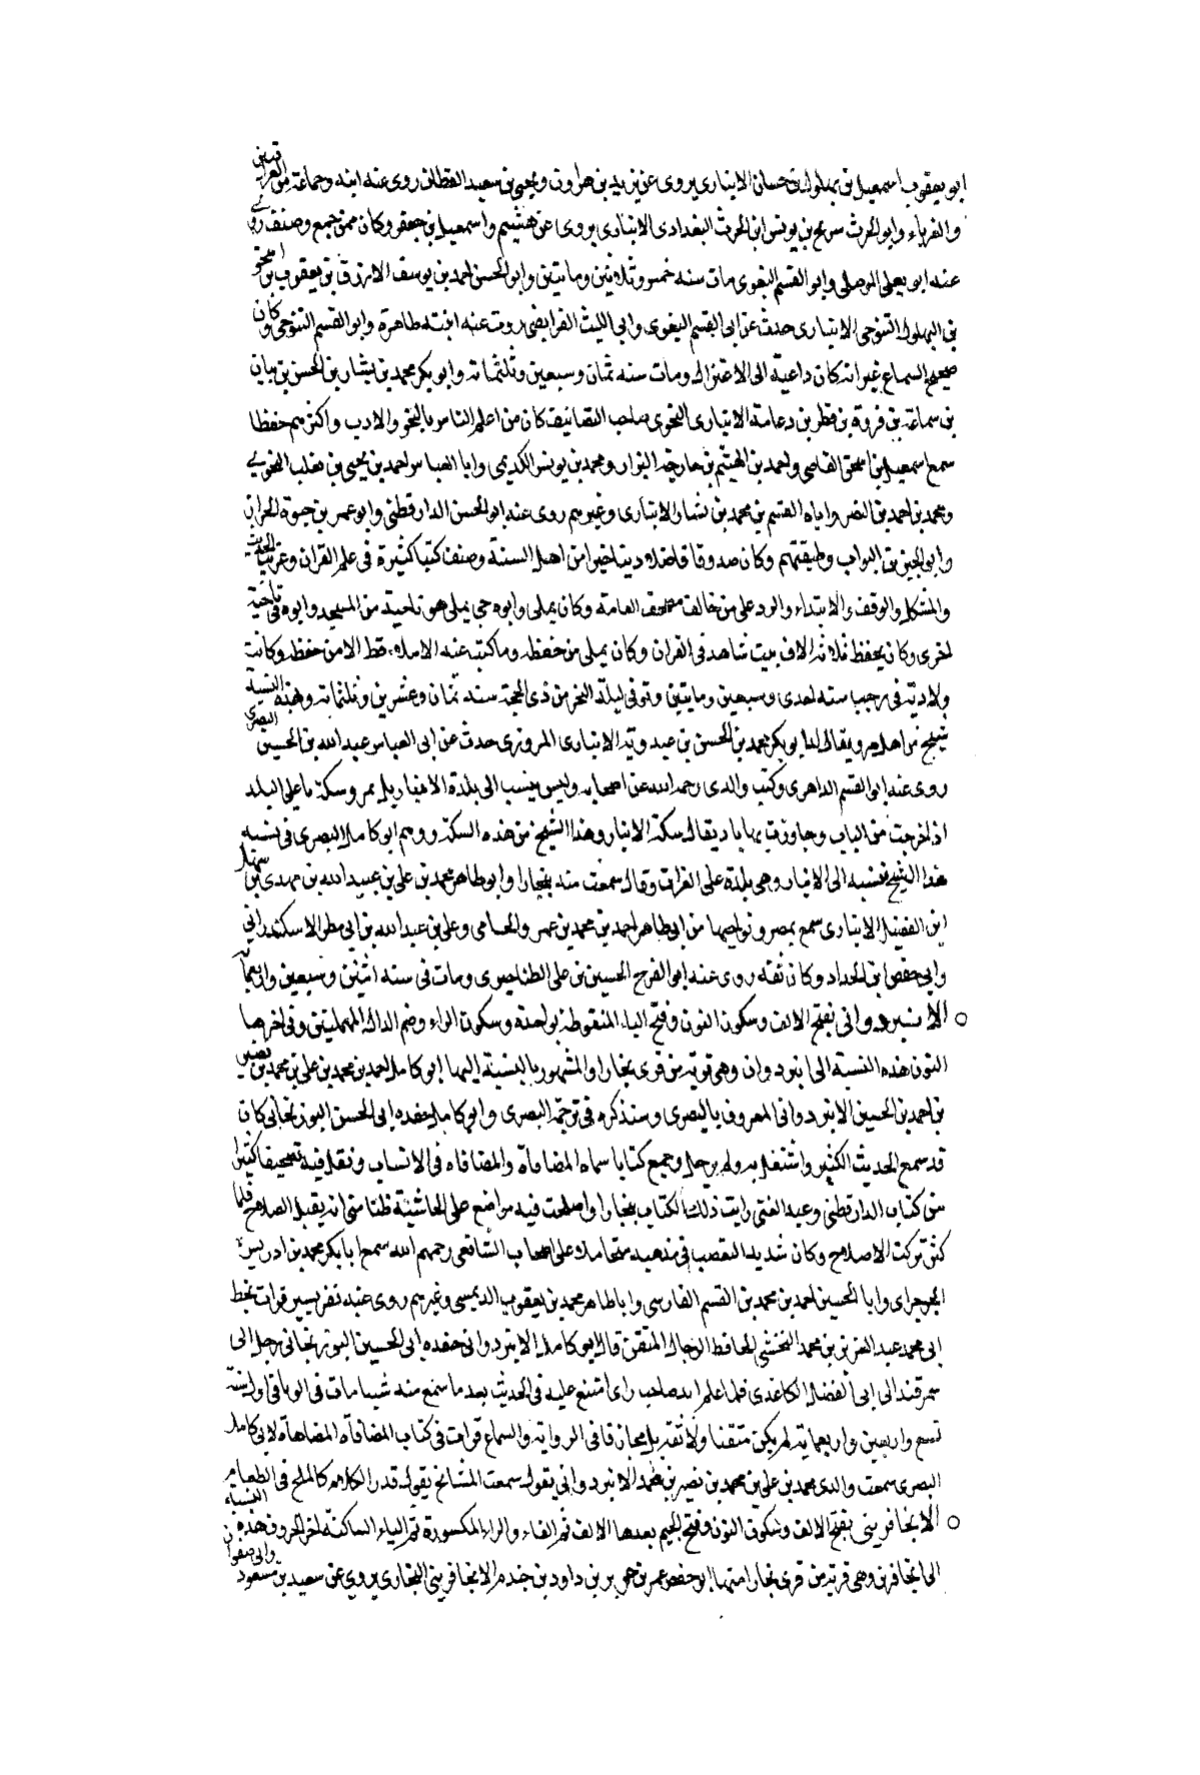 ابو يعقوب اسمعيل بن بهلول بن حسان الانبارى يروى عن يزيد بن هارون ويحيى بن سعيد القطان روى عنه ابنه وجماعة من العراقيين
والغرباء وابو الحرث سريج بن يونس ابن الحرث البغدادى الانبارى يروى عن هشيم واسمعيل بن جعفر وكان ممن جمع وصنف روى
عنه ابو يعلى الموصلى وابو القسم البغوى مات سنه خمس وثلاثين ومايتين وابو الحسن احمد بن يوسف الازرق بن يعقوب بن اسحق
بن البهلول التنوخى الانبارى حدث عن ابى القسم البغوى وابى الليث الفرايضى روت عنه ابنته طاهرة وابو القسم التنوخى وكان
صحيح السماع غير انه كان داعية الى الاعتزال ومات سنه ثمان وسبعين وثلثماته وابو بكر محمد بن بشار بن الحسن بن بيان
بن سماعة بن فروة بن قطن بن دعامة الانبارى النحوى صاحب التصانيف كان من اعلم الناس بالنحو والادب واكثرهم حفظا
سمع اسمعيل بن اسحق القاضى واحمد بن الهيثم بن خارجه البزار ومحمد بن يونس الكديمى وابا العباس احمد بن يحيى بن ثعلب النحوى
ومحمد بن احمد بن النضر واباه القسم بن محمد بن بشار الانبارى وغيرهم روى عنه ابو الحسن الدارقطنى وابو عمر بن حيوة الخزاز
وابو الحسين بن البواب وطبقتهم وكان صدوقا فاضلا دينا خيرا من اهل السنة وصنف كتبا كثيرة فى علم القران وغريب الحديث
والمشكل والوقف والابتداء والرد على من خالف مصحف العامة وكان يملى وابوه حى يملى هو ناحية من المسجد وابوه فى ناحية
اخرى وكان يحفظ ثلاثة الاف بيت شاهد فى القران وكان يملى من حفظه وما كتب عنه الاملاء قط الا من حفظه وكانت
ولادته فى رجب سنه احدى وسبعين ومايتين وتوفى ليلة النحر من ذى الحجة سنه ثمان وعشرين وثلثماته وبهذه النسبة
شيخ من اهل مرو يقال له ابو بكر محمد بن الحسن بن عبدويه الانبارى المروزى حدث عن ابى العباس عبد الله بن الحسين البصرى
روى عنه ابو القسم الزاهرى وكتب والدى رحمه الله عن اصحابه وليس ينسب الى بلدة الانبار بل بمرو سكة باعلى البلد
اذا خرجت من الباب وجاوزت بها باد يقال سكة الانبار وهذا الشيخ من هذه السكة ووهم ابو كامل البصرى فى نسبه
هذا الشيخ فنسبه الى الانبار وهى بلدة على الفرات وقال سمعت منه ببخارا وابو طاهر محمد بن على بن عبيد الله بن مهدى بن سهل
ابن الفضل الانبارى سمع بمصر ونواحيها من ابى طاهر احمد بن محمد بن عمرو الحامى وعلى بن عبد الله بن ابى مطر الاسكندرانى
وابى حفص ابن الحداد وكان ثقه روى عنه ابو الفرج الحسين بن على الطناجيرى ومات فى سنه اثنين وسبعين واربعماته
الانبردوانى بفتح الالف وسكون النون وفتح الباء المنقوطة بواحدة وسكون الراء وضم الدال المهملتين وفى اخرها
النون هذه النسبة الى انبردوان وهى قرية من قرى بخارا والمشهور بالنسبة اليها ابو كامل احمد بن محمد بن على بن محمد بن بصير
بن احمد بن الحسين الانبردوانى المعروف بالبصرى وسنذكره فى ترجمة البصرى وابو كامل حفده ابى الحسن البوزنجانى كان
قد سمع الحديث الكثير واشتغل به ولم يرحل وجمع كتابا سماه المضافاة والمضاهاه فى الانساب ونقل فيه تصحيفا كثيرا
من كتاب الدارقطنى وعبد الغنى رايت ذلك الكتاب ببخارا واصلحت فيه مواضع على الحاشية ظنا منى انه يقبل الصلاح فلما
كثر تركت الاصلاح وكان شديد التعصب فى مذهبه متحاملا على اصحاب الشافعى رحمهم الله سمع ابا بكر محمد بن ادريس
الجرجراى وابا الحسين احمد بن محمد بن القسم الفارسى وابا طاهر محمد بن يعقوب الديمسى وغيرهم روى عنه نفر يسير قرات بخط
ابى محمد عبد العزيز بن محمد النخشبى الحافظ الرحال المتقن قال ابو كامل الانبردوانى حفده ابى الحسين البوزنجانى رحل الى
سمرقند الى ابى الفضل الكاغدى فلما علم انه صاحب راى امتنع عليه فى الحديث بعد ما سمع منه شيبا مات فى الوباء فى اول سنة
تسع واربعين واربعماية لم يكن متقنا ولا ثقة بل مجازفا فى الرواية والسماع قرات فى كتاب المضافاه المضاهاة لابى كامل
البصرى سمعت والدى محمد بن على بن محمد بن نصير بن محمد الانبردوانى يقول سمعت المشائخ يقول قدر الكلام كالملح فى الطعام
الانجافرينى بفتح الالف وسكون النون وفتح الجيم بعدها الالف ثم الفاء والراء المكسورة ثم الياء الساكنة اخر الحروف هذه النسبة
الى انجافرين وهى قرية من قرى بخارا منها ابو حفص عمر بن جرير بن داود بن خيدم الانجافرينى البخارى يروى عن سعيد بن مسعود وابى صفوان